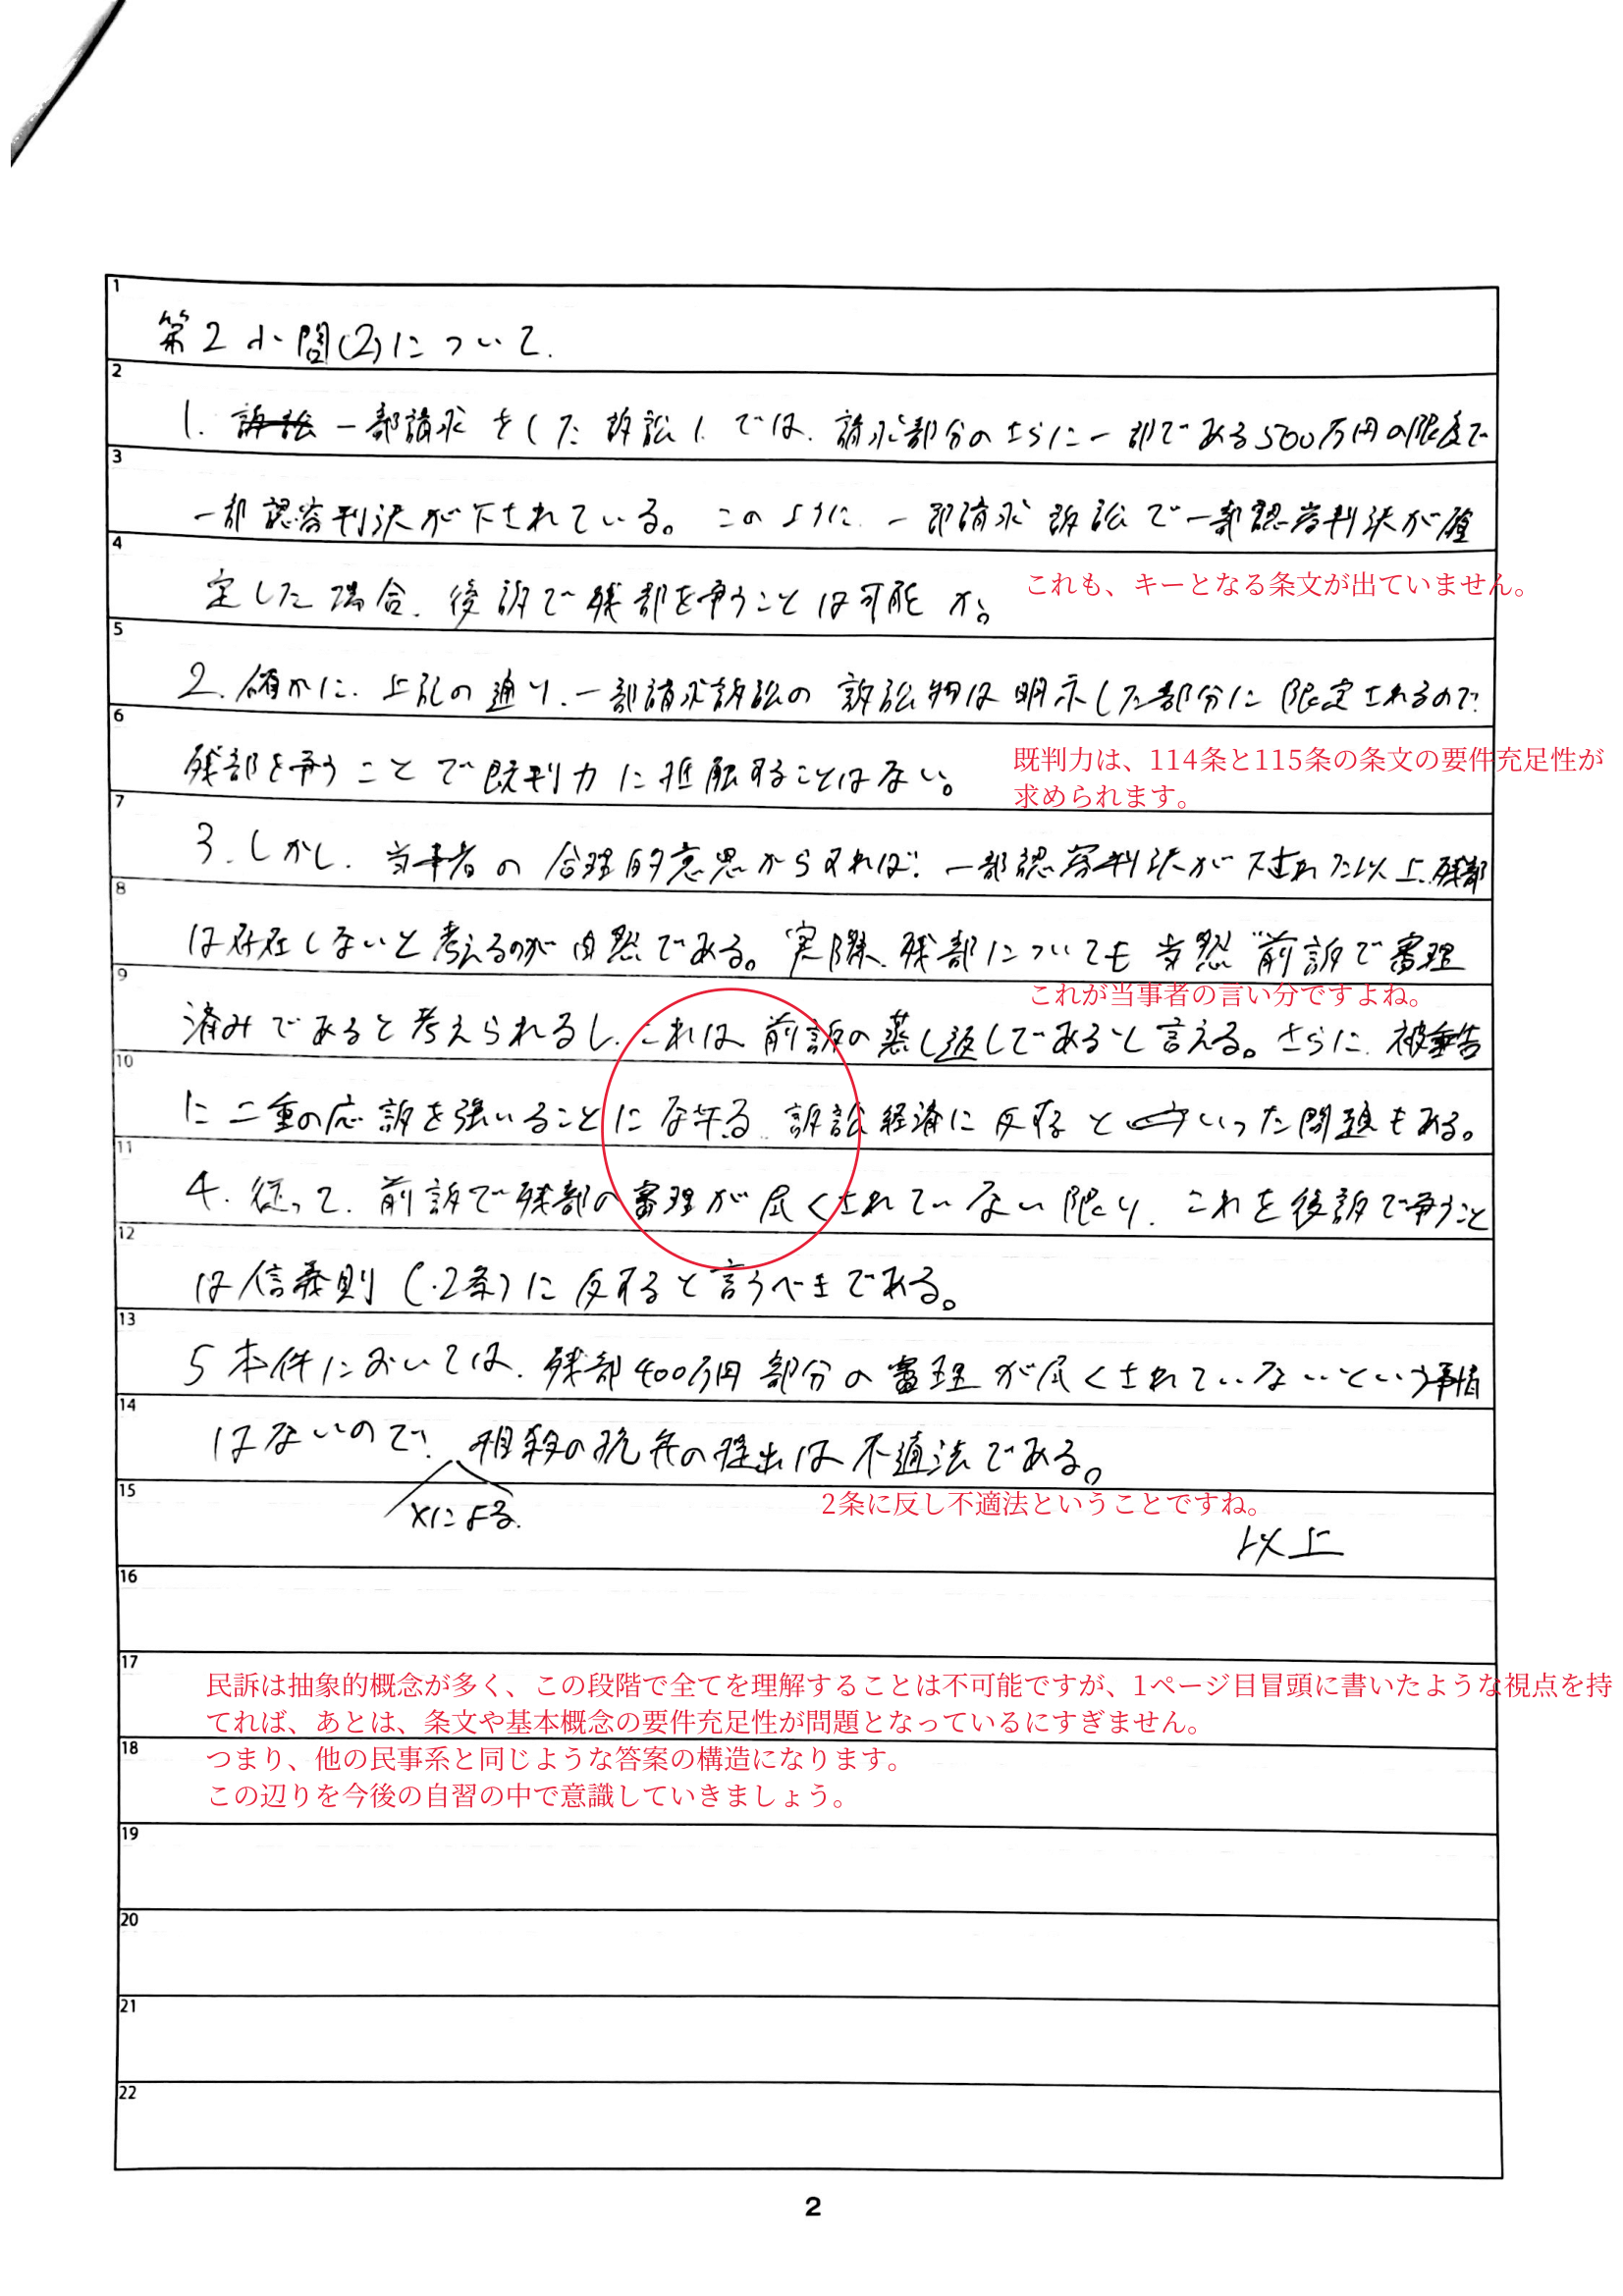 1
第2 小問(2)について.
2
1. 訴訟 一部請求をした訴訟1では、請求部分のさらに一部である500万円の限度で
3
一部認容判決が下されている。このように、一部請求訴訟で一部認容判決が確
4
定した場合、後訴で残部を争うことは可能か。
これも、キーとなる条文が出ていません。
5
2. 確かに、上記の通り、一部請求訴訟の訴訟物は明示した部分に限定されるので、
6
残部を争うことで既判力に抵触することはない。
既判力は、114条と115条の条文の要件充足性が
求められます。
7
3. しかし、当事者の合理的意思からすれば、一部認容判決が下された以上、残部
8
は存在しないと考えるのが自然である。実際、残部についても当然前訴で審理
9
これが当事者の言い分ですよね。
済みであると考えられるし、これは前訴の蒸し返しであると言える。さらに、被告
10
に二重の応訴を強いることになる、訴訟経済に反するといった問題もある。
11
4. 従って、前訴で残部の審理が尽くされていない限り、これを後訴で争うこと
12
は信義則(2条)に反すると言うべきである。
13
5 本件においては、残部400万円部分の審理が尽くされていないという事情
14
はないので、相殺の抗弁の提出は不適法である。
15
Xによる.
2条に反し不適法ということですね。
以上
16
17
民訴は抽象的概念が多く、この段階で全てを理解することは不可能ですが、1ページ目冒頭に書いたような視点を持
てれば、あとは、条文や基本概念の要件充足性が問題となっているにすぎません。
18
つまり、他の民事系と同じような答案の構造になります。
この辺りを今後の自習の中で意識していきましょう。
19
20
21
22
2